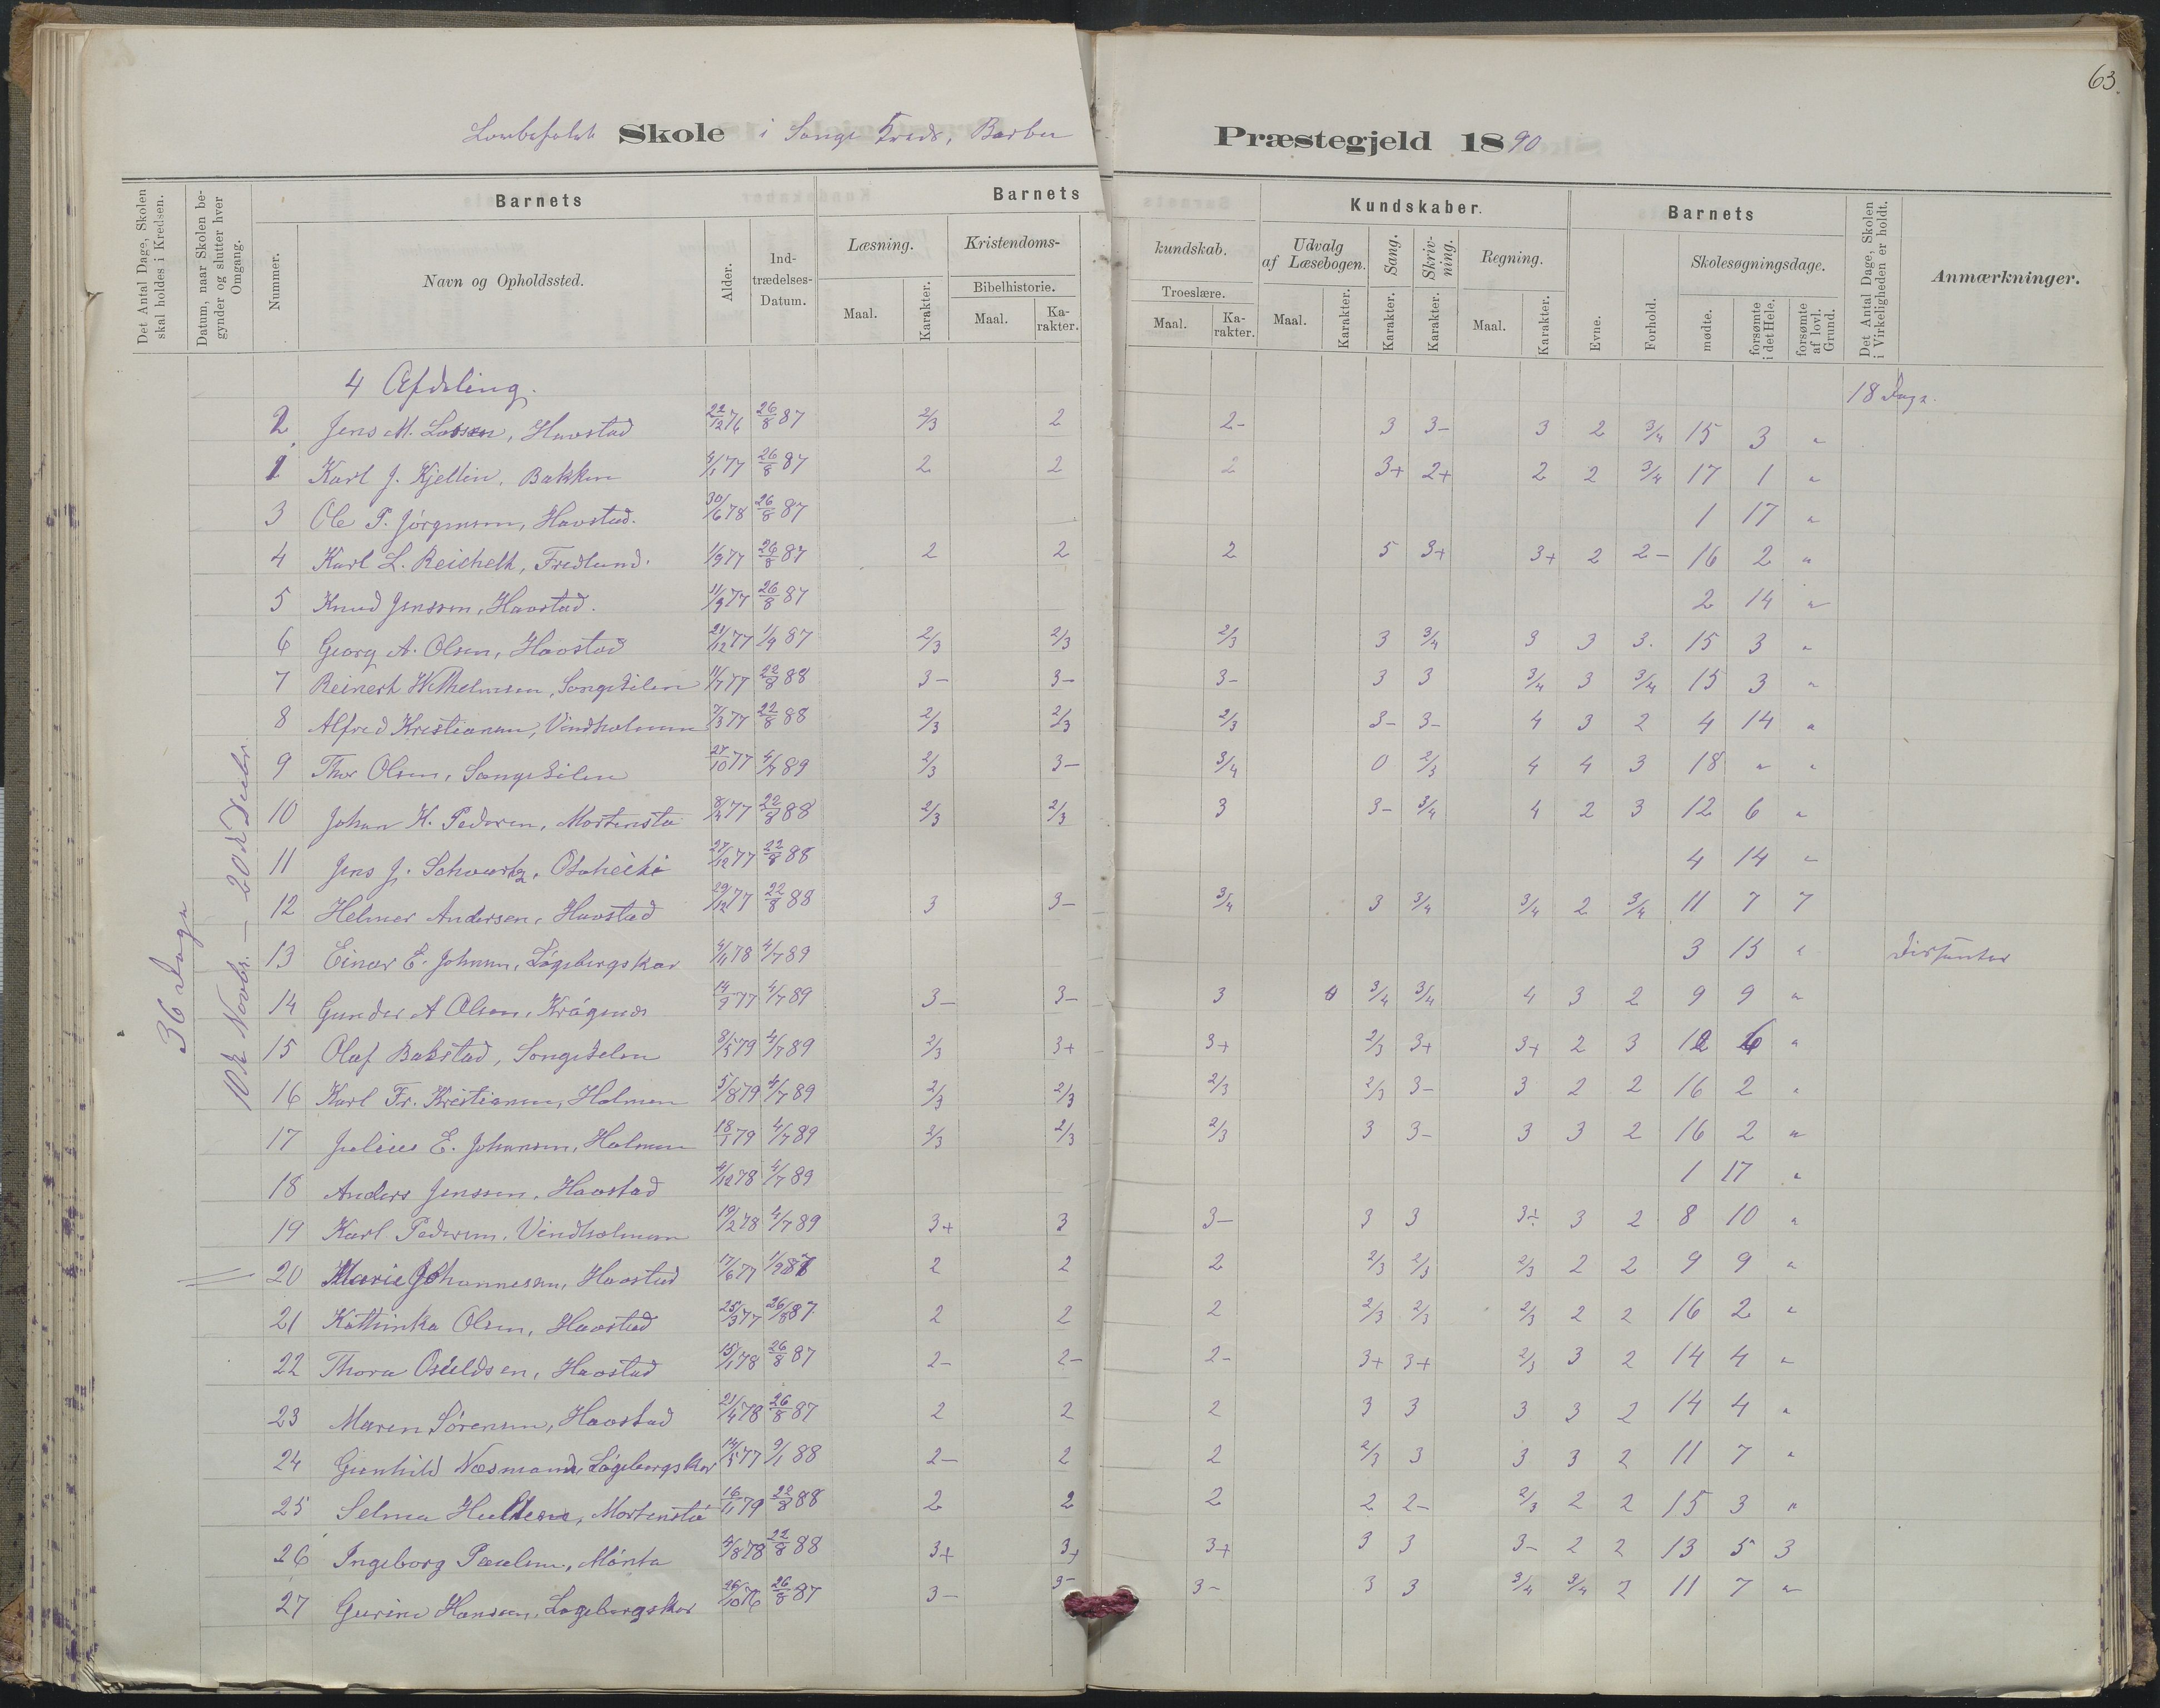 63.
Skole i Songe Kreds, Barbu Præstegjeld 1890
Det Antal Dage, Skolen skal holdes i Kredsen.
Datum, naar Skolen begynder og slutter hver Omgang.
Barnets
Nummer.
Navn og Opholdssted.
Alder.
Indtrædelses-Datum.
Barnets Kundskaber.
Læsning. Maal. Karakter.
Kristendomskundskab.
Bibelhistorie. Maal. Karakter.
Troeslære. Maal. Karakter.
Udvalg af Læsebogen. Maal. Karakter.
Sang. Karakter.
Skrivning. Karakter.
Regning. Maal. Karakter.
Barnets
Evne. Forhold.
Skolesøgningsdage.
mødte. forsømte i det Hele. forsømte af lovl. Grund.
Det Antal Dage, Skolen i Virkeligheden er holdt.
Anmærkninger.
36 Dage
10de Novbr. — 20de Decbr.
4 Afdeling. 18 Dage.
2 Jens M. Lassen, Havstad 22/12 76 26/8 87 2/3 2 2- 3 3- 3 2 3/4 15 3 "
1 Karl J. Kjellin, Bakken 4/1 77 26/8 87 2 2 2 3+ 2+ 2 2 3/4 17 1 "
3 Ole P. Jörgensen, Havstad. 30/6 78 26/8 87 1 17 "
4 Karl L. Reichelt, Fredlund. 1/9 77 26/8 87 2 2 2 5 3+ 3+ 2 2- 16 2 "
5 Knud Jenssen, Havstad. 11/9 77 26/8 87 2 14 "
6 Georg A. Olsen, Havstad 21/12 77 1/9 87 2/3 2/3 2/3 3 3/4 3 3 3. 15 3 "
7 Reinert Wilhelmsen, Songekilen 11/7 77 22/8 88 3- 3- 3- 3 3 3/4 3 3/4 15 3 "
8 Alfred Kristiansen, Vindholmen 7/3 77 22/8 88 2/3 2/3 2/3 3- 3- 4 3 2 4 14 "
9 Thor Olsen, Songekilen 27/10 77 4/7 89 2/3 3- 3/4 0 2/3 4 4 3 18 " "
10 Johan K. Pedersen, Mortenstø 77 22/8 88 2/3 2/3 3 3- 3/4 4 2 3 12 6 "
11 Jens J. Schwartz, Otaheiti 27/12 77 22/8 88 4 14 "
12 Helmer Andersen, Havstad 29/12 77 22/8 88 3 3- 3/4 3 3/4 3/4 2 3/4 11 7 7
13 Einar E. Johnsen, Lögebergskar 78 4/7 89 3 15 " Dissenter
14 Gunder A Olsen, Krögenes 14/9 77 4/7 89 3- 3- 3 3/4 3/4 4 3 2 9 9 "
15 Olaf Bakstad, Songekilen 8/5 79 4/7 89 2/3 3+ 3+ 2/3 3+ 3+ 2 3 12 6 "
16 Karl Fr. Kristiansen, Holmen 5/8 79 4/7 89 2/3 2/3 2/3 2/3 3- 3 2 2 16 2 "
17 Julius E. Johansen, Holmen 18/1 79 4/7 89 2/3 2/3 2/3 3 3- 3 3 2 16 2 "
18 Anders Jenssen, Havstad 4/12 78 4/7 89 1 17 "
19 Karl Pedersen, Vindholmen 19/2 78 4/7 89 3+ 3 3- 3 3 3÷ 3 2 8 10 "
20 Marie Johannesen, Havstad 17/6 77 1/9 87 2 2 2 2/3 2/3 2/3 2 2 9 9 "
21 Kathinka Olsen, Havstad 25/3 77 26/8 87. 2 2 2 2/3 2/3 2/3 2 2 16 2 "
22 Thora Osuldsen, Havstad 15/1 78 26/8 87 2- 2- 2- 3+ 3+ 2/3 3 2 14 4 "
23 Maren Sörensen, Havstad 21/4 78 26/8 87 2 2 2 3 3 3 3 2 14 4 "
24 Gunhild Næsmand, Lögebergskar 14/5 77 9/1 88 2- 2 2 2/3 3 3 3 2 11 7 "
25 Selma Hultena, Mortenstø 16/11 79 22/8 88 2 2 2 2 2- 2/3 2 2 15 3 "
26 Ingeborg Paulsen, Mörta 4/8 78 22/8 88 3+ 3+ 3+ 3 3 3- 2 2 13 5 3
27 Gurine Hansen, Lögebergskar 26/10 76 26/8 87 3- 3- 3- 3 3 3/4 3/4 2 11 7 "